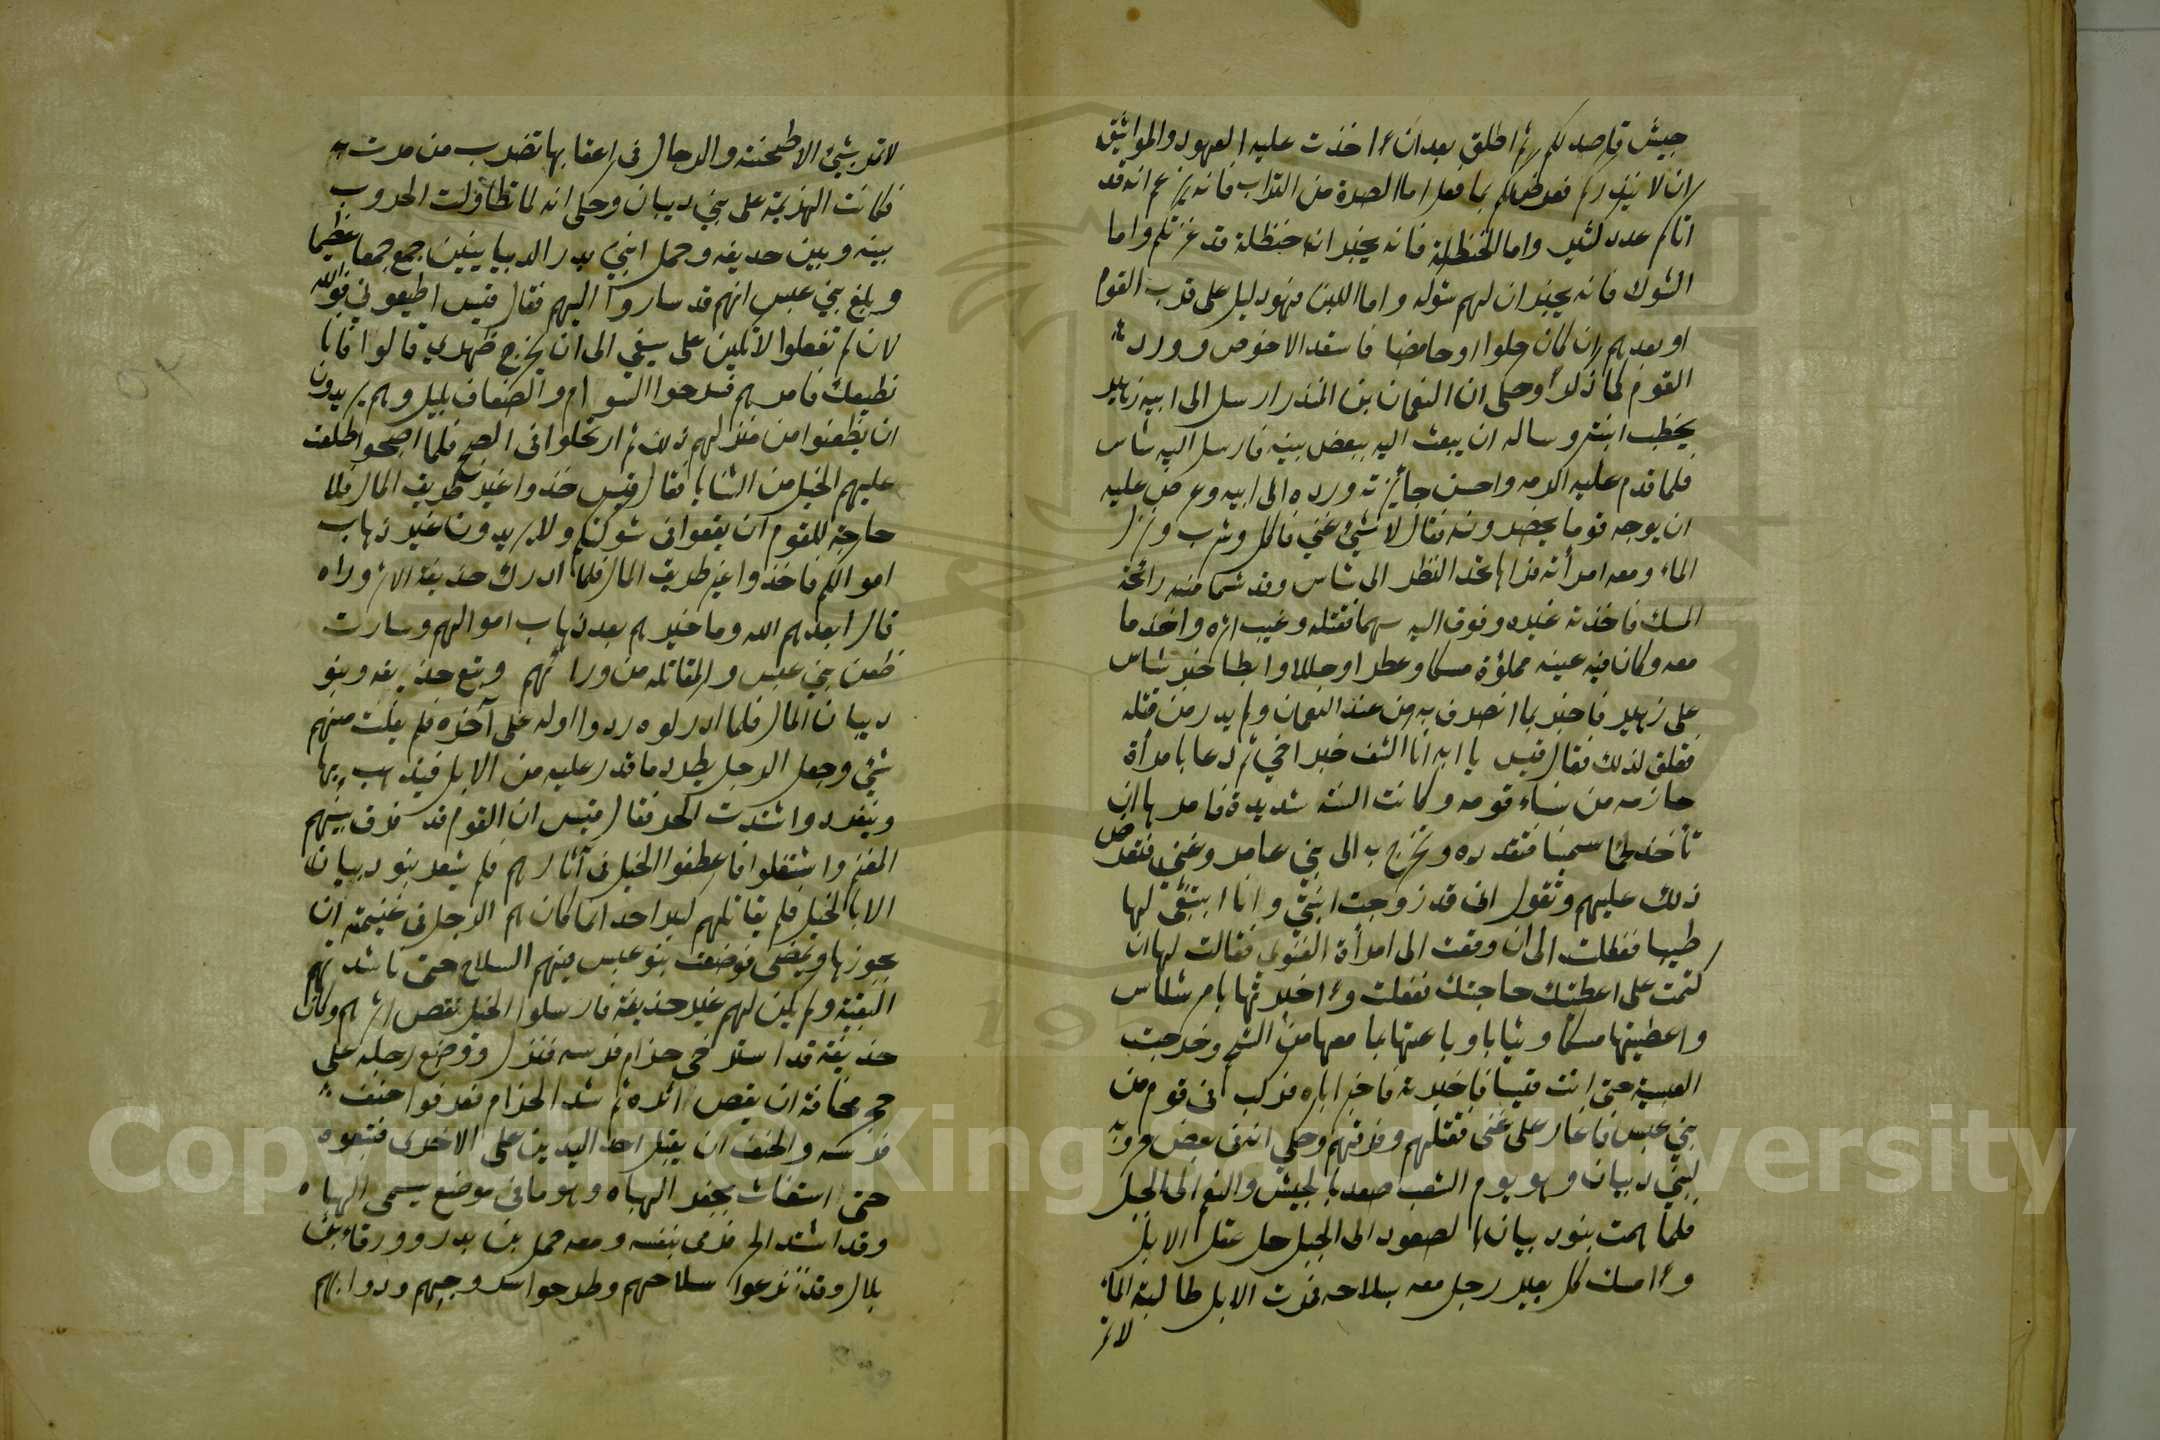 جيش قاصد لكم ثم اطلق بعد ان اخذت عليه العهود والمواثيق
ان لا ينذركم فعرفكم بما فعل اما الصرة من التراب فانه يزعم انه قد
اتاكم عدد كثير واما الحنظلة فانه يخبر ان حنظلة قد غزتكم واما
الشوك فانه يخبر ان لهم شوكه واما اللبن فهو دليل على قرب القوم
او بعدهم ان كان حلوا او حامضا فاستعد الاخوص وورد
القوم كما ذكر وحكى ان النعمان بن المنذر ارسل الى ابيه زهير
يخطب ابنته وساله ان يبعث اليه ببعض بنيه فارسل اليه شاس
فلما قدم عليه اكرمه واحسن جايزته ورده الى ابيه وعرض عليه
ان يوجه قوما يخفرونه فقال لا شيئ غني فاكل وشرب ونزل
الماء ومعه امرأته فراها تحد النظر الى شاس وقد شما منه رائحة
المسك فاخذته غيره وفوق اليه سهما فقتله وغيب اثره واخذ ما
معه وكان فيه عيبه مملؤة مسكا وعطرا وحللا وابطا خبر شاس
على زهير فاخبر بما انصرف به من عند النعمان ولم يدر من قتله
فقلق لذلك فقال قيس يا ابه انا اكشف خبر اخي ثم دعا بامرأة
حازمه من نساء قومه وكانت السنة شديدة فامرها ان
تأخذ لحما سمينا فتقدده وتخرج به الى بني عامر وغني فتعرض
ذلك عليهم وتقول انى قد زوجت ابنتي وانا ابتغي لها
طيبا ففعلت الى ان وقعت الى امرأة الغنوى فقالت لها ان
كتمت على اعطيتك حاجتك ففعلت واخبرتها بامر شاس
واعطيتها مسكا وثيابا وباعتها بما معها من الشحم وخرجت
العبسية حتى اتت قيسا فاخبرته فاخبر اباه فركب فى قوم من
بني عبس فاغار على غنى فقتلهم وفرقهم وحكي انه فى بعض حروبه
لبني ذبيان وهو يوم الشعب صعد بالجيش والنعم الى الجبل
فلما همت بنو ذبيان بالصعود الى الجبل حل عقل الابل
وامسك كل بعير رجل معه سلاحه فمرت الابل طالبة الماء
لا تمر
لا تمر بشيئ الا طحنته والرجال فى اعقابها تضرب من مرت به
فكانت الهزيمة على بني ذبيان وحكى انه لما تطاولت الحروب
بينه وبين حذيفه وحمل ابني بدر الذبيانيين جمع جمعا عظيما
وبلغ بني عبس انهم قد ساروا اليهم فقال قيس اطيعوني فوالله
لان لم تفعلوا لاتكين على سيفي الى ان يخرج من ظهري قالوا فانا
نطيعك فامرهم فسرحوا السوام والضعاف بليل وهم يريدون
ان يظعنوا من منزلهم ذلك ثم ارتحلوا فى الصبح فلما اصبحوا طلعت
عليهم الخيل من الثنايا فقال قيس خذوا غير طريق المال فلا
حاجة للقوم ان يقعوا فى شوكتكم ولا يريدون غير ذهاب
اموالكم فاخذوا غير طريق المال فلما ادرك حذيفة الاثر وراه
قال ابعدهم الله وما خيرهم بعد ذهاب اموالهم وسارت
ظعن بني عبس والمقاتله من ورائهم وتبع حذيفه وبنو
ذبيان المال فلما ادركوه ردوا اوله على آخره فلم يفلت منهم
شيئ وجعل الرجل يطرد ما قدر عليه من الابل فيذهب بها
وينفرد واشتدت الحر فقال قيس ان القوم قد فرق بينهم
المغنم واشتغلوا فاعطفوا الخيل فى آثارهم فلم يشعر بنو ذبيان
الا بالخيل فلم يقاتلهم كثير احد انما كان هم الرجل فى غنيمته ان
يحوزها ويمضى فوضعت بنو عبس فيهم السلاح حتى ناشدتهم
البقية ولم يكن لهم غير حذيفة فارسلوا الخيل تقص اثرهم وكان
حذيفة قد استرخى حزام فرسه فنزل ووضع رجله على
حجر مخافة ان يقص اثره ثم شد الحزام فعرفوا حنف
فرسه والحنف ان يقبل احد اليدين على الاخرى فتبعوه
حتى استغاث بجفر الهباه وهو ما فى موضع يسمى الهباه
وقد اشتد الحر فرمى بنفسه ومعه حمل بن بدر وورقاء بن
بلال وقد نزعوا سلاحهم وطرحوا سروجهم ودوابهم
Copyright © King Saud University